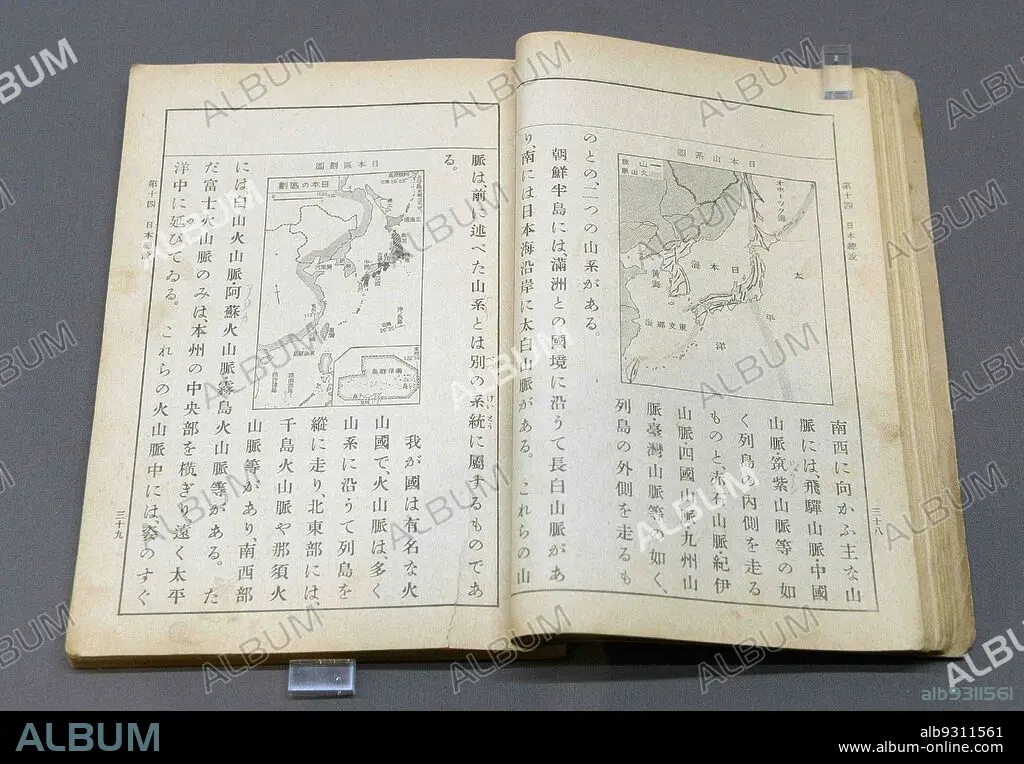 第十四 日本總說
三十八
日本山系圖
山脈
火山脈
オホーツク海
太
平
洋
日本海
黃海
東支那海
南西に向かふ主な山
脈には、飛驒山脈中國
山脈・筑紫山脈等の如
く列島の內側を走る
ものと、赤石山脈・紀伊
山脈・四國山脈九州山
脈・臺灣山脈等の如く、
列島の外側を走るも
のとの、二つの山系がある。
朝鮮半島には、滿洲との國境に沿うて長白山脈があ
り、南には日本海沿岸に太白山脈がある。これらの山
脈は、前に述べた山系とは別の系統に屬するものであ
けいとう
る。
日本區劃圖
日本の區劃
南洋群島
我が國は有名な火
山國で、火山脈は、多く
山系に沿うて列島を
縱に走り、北東部には
千島火山脈や那須火
山脈等があり、南西部
には白山火山脈・阿蘇火山脈・霧島火山脈等がある。た
だ富士火山脈のみは、本州の中央部を橫ぎり、遠く太平
洋中に延びてゐる。これらの火山脈中には姿のすぐ
第十四 日本總說
三十九
ALBUM
alb9311561
ALBUM
alb9311561
www.album-online.com